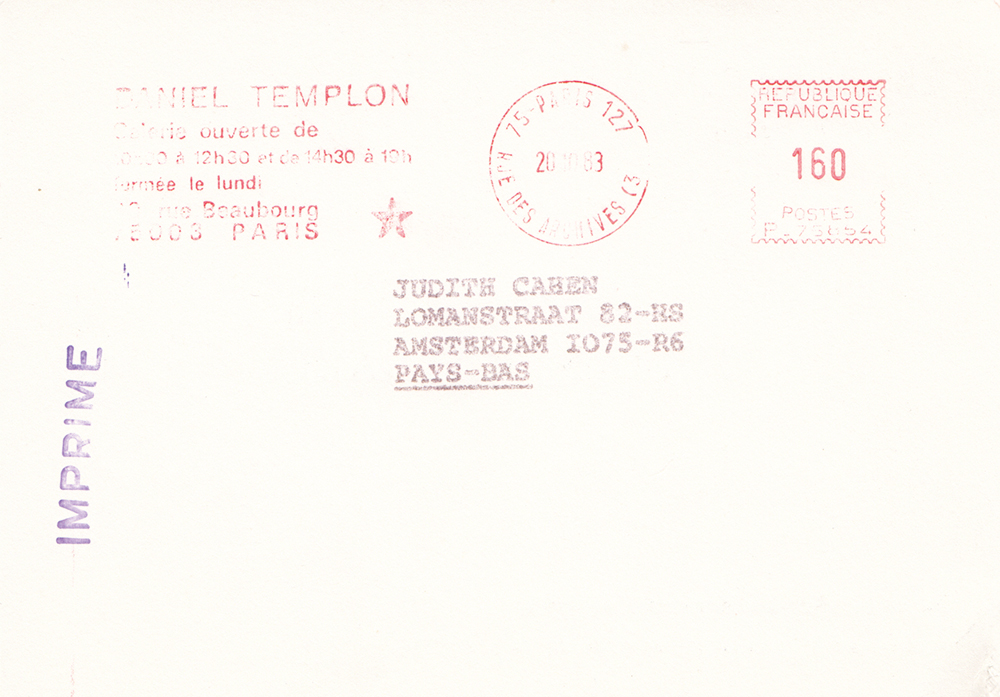 DANIEL TEMPLON
Galerie ouverte de
à 12h30 et de 14h30 à 19h
fermée le lundi
rue Beaubourg
75003 PARIS
75-PARIS 127
RUE DES ARCHIVES (3
20 10 83
REPUBLIQUE
FRANÇAISE
160
POSTES
JUDITH CAHEN
LOMANSTRAAT 82-HS
AMSTERDAM IO75-R6
PAYS-BAS
IMPRIME